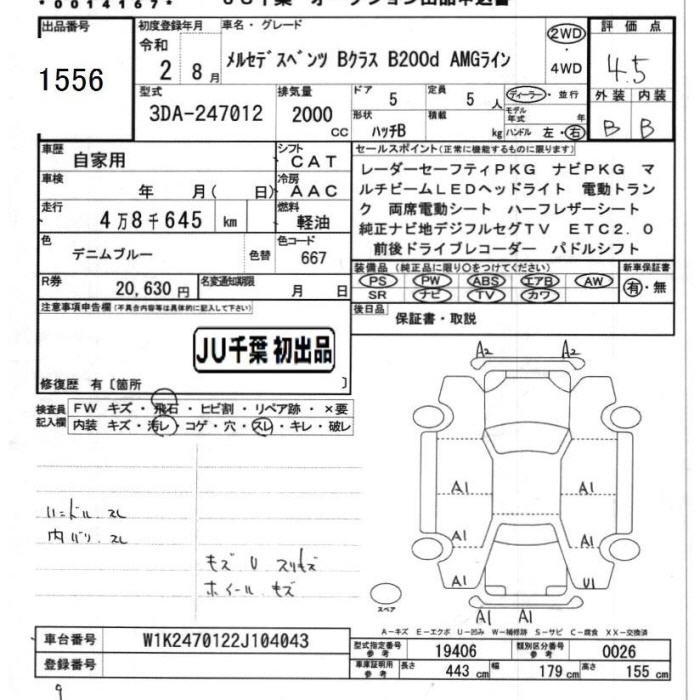 *0014167*
JU千葉 オークション出品申込書
出品番号
1556
初度登録年月
令和
2 年 8 月
車名・グレード
メルセデスベンツ Bクラス B200d AMGライン
2WD
・
4WD
評価点
4.5
型式
3DA-247012
排気量
2000
CC
ドア
5
定員
5 人
ディーラー・並行
形状
ハッチB
積載
kg
モデル年式 年
ハンドル 左・右
外装 内装
B B
車歴
自家用
シフト
CAT
車検
年 月( 日)
冷房
AAC
走行
4万8千645 km
燃料
軽油
色
デニムブルー
色替
色コード
667
R券
20,630円
名変通知期限
月 日
セールスポイント(正常に機能するものに限ります)
レーダーセーフティPKG ナビPKG マ
ルチビームLEDヘッドライト 電動トラン
ク 両席電動シート ハーフレザーシート
純正ナビ地デジフルセグTV ETC2.0
前後ドライブレコーダー パドルシフト
装備品 (純正品に限り○をつけてください)
PS PW ABS エアB AW
SR ナビ TV カワ
新車保証書
有・無
後日品
保証書・取説
注意事項申告欄(不具合内容等は具体的に記入して下さい)
JU千葉 初出品
修復歴 有〔箇所 〕
検査員
記入欄
FW キズ・飛石・ヒビ割・リペア跡・×要
内装 キズ・汚レ・コゲ・穴・スレ・キレ・破レ
ハンドル スレ
内バリ スレ
キズ U スリキズ
ホイール キズ
A2 A2
A1 A1
A1 A1
A1 U1
A1 A1
スペア
A-キズ E-エクボ U-凹み W-補修跡 S-サビ C-腐食 XX-交換済
車台番号
W1K2470122J104043
登録番号
型式指定番号
参考
19406
類別区分番号
参考
0026
車庫証明用
参考
長さ 443 cm 幅 179 cm 高さ 155 cm
9